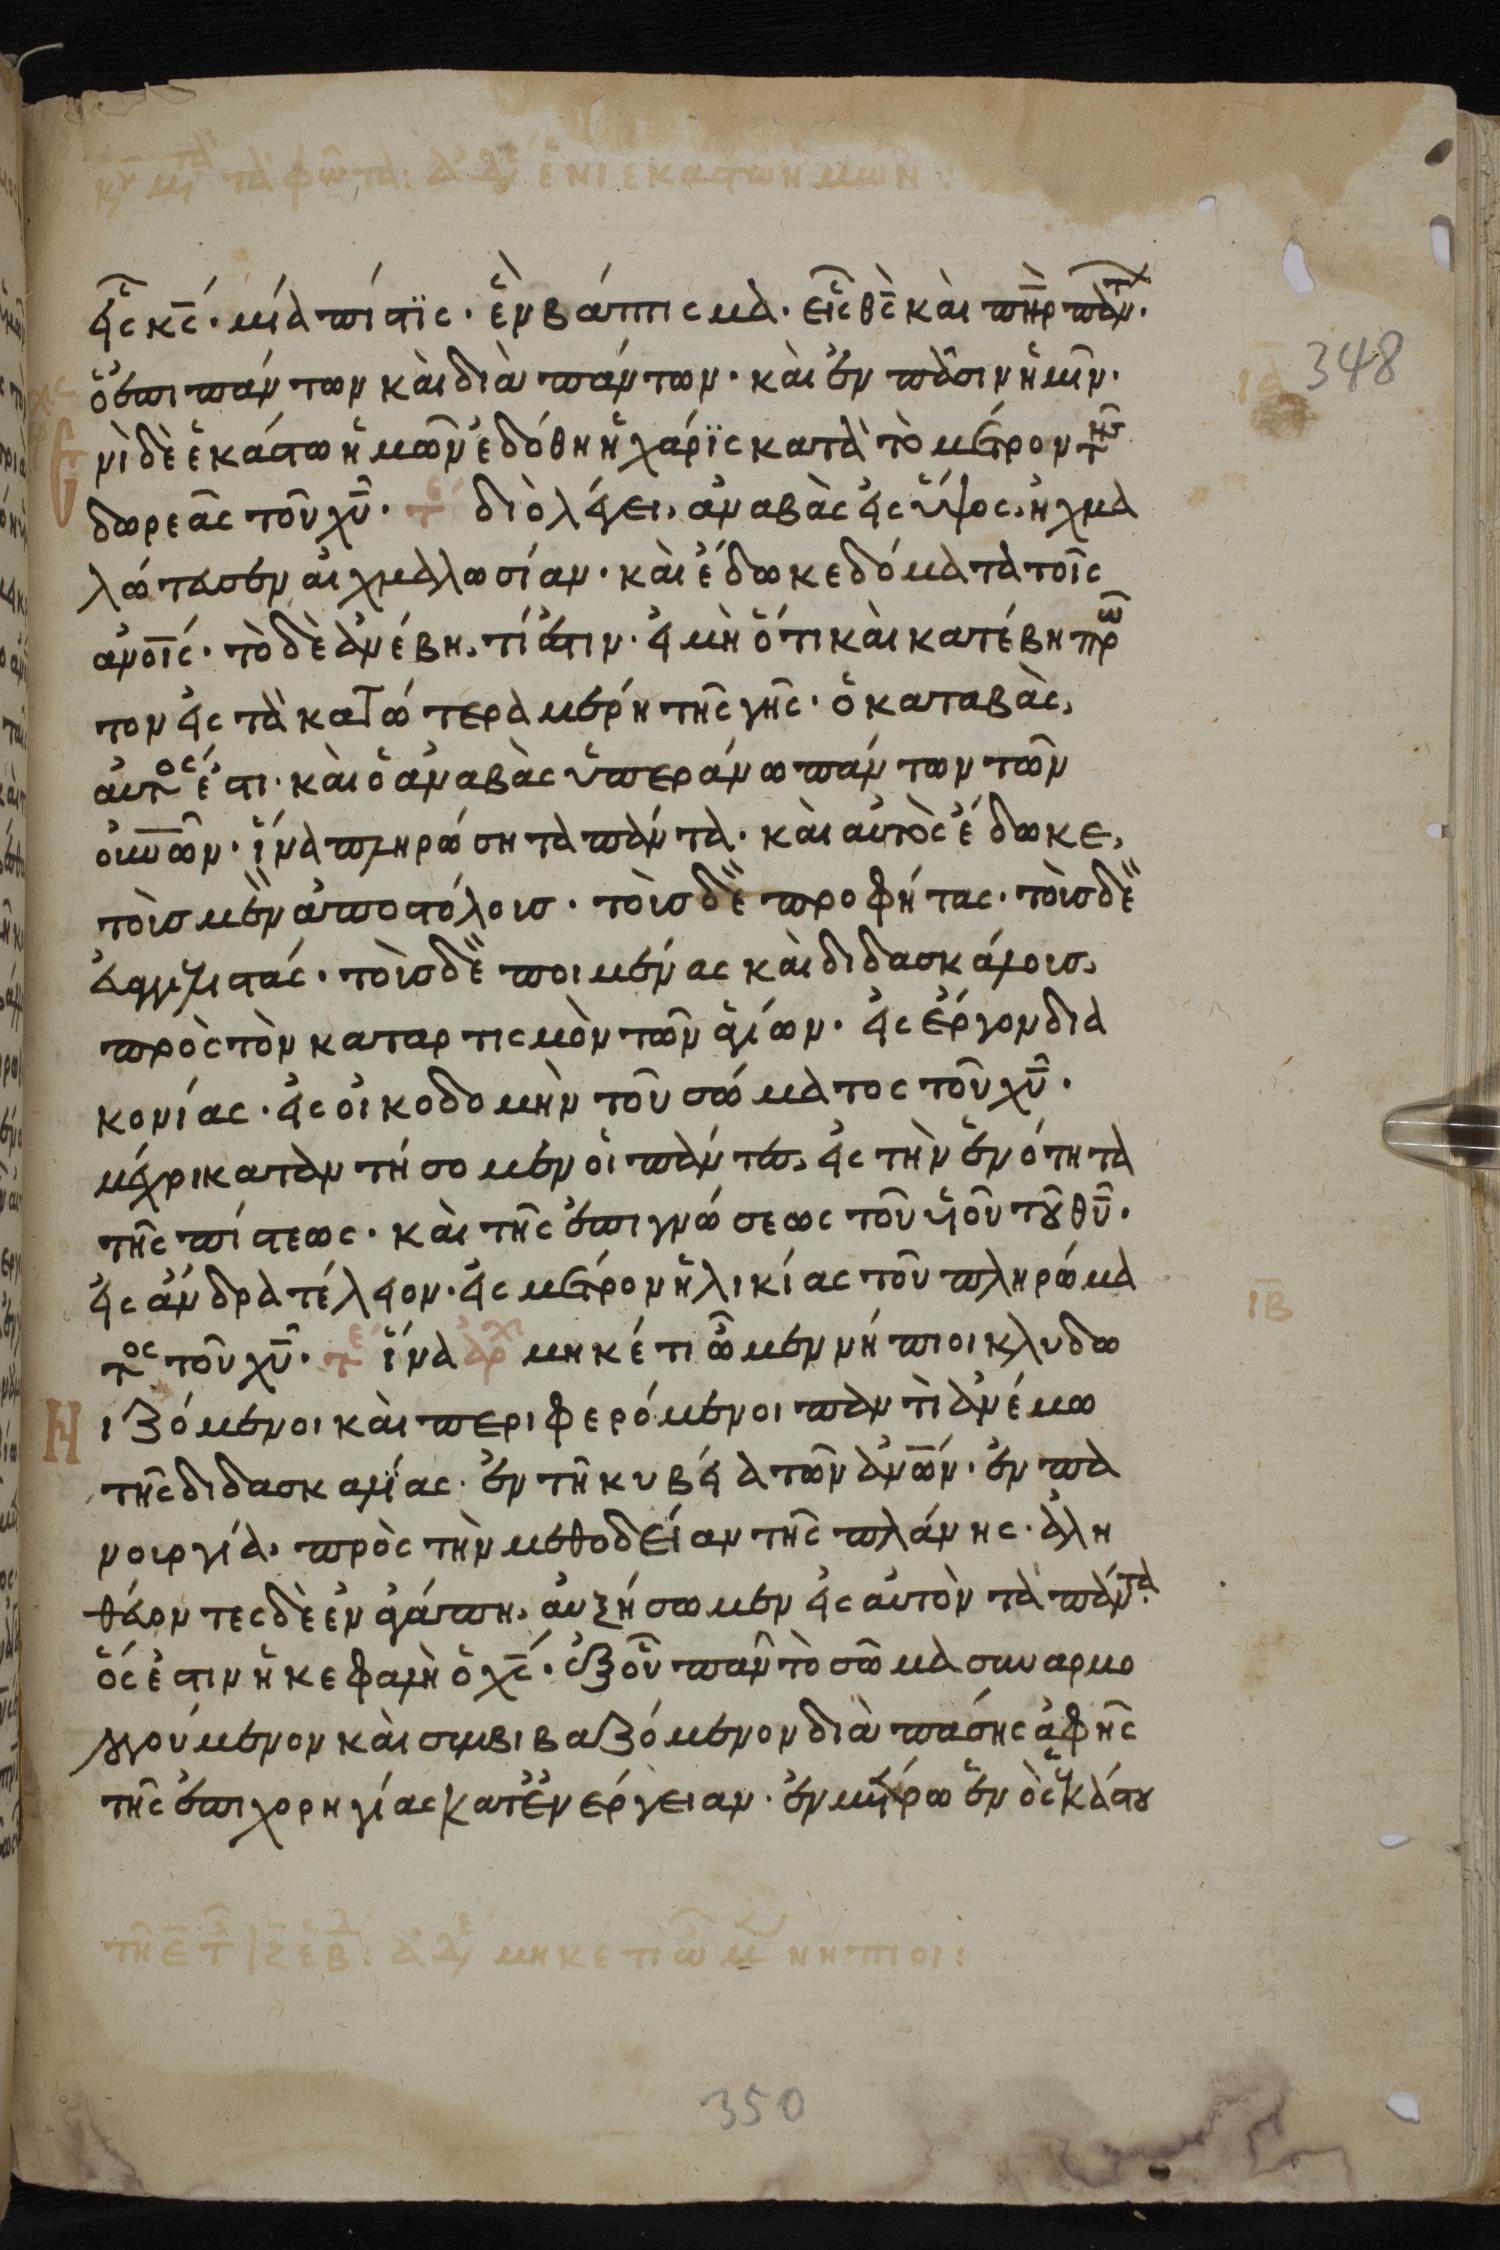 κυ μετ τὰ φῶτα: ἀδε ἑνὶ ἑκάστω ἡμῶν:
εἷς κς· μία πίστϊς· ἓν βάπτισμα· εἷς θς καὶ πηρ πάντ·
ὁ ἐπι πάντων καὶ διὰ πάντων· καὶ ἐν πᾶσιν ἡμῖν·
348
ια
Ενὶ δὲ ἑκάστω ἡμῶν ἐδόθη ἡ χάρϊς κατὰ τὸ μέτρον τῆς
δωρεᾶς τοῦ χυ· τε διὸ λέγει, ἀναβὰς εἰς ὕψος, ἠχμα
λώτευσεν αἰχμαλωσίαν· καὶ ἔδωκε δόματα τοῖς
ἀνοις· τὸ δὲ ἀνέβη, τί ἐστιν· εἰ μὴ ὅτι καὶ κατέβη πρῶ
τον εἰς τὰ κατώτερα μέρη τῆς γῆς· ὁ καταβὰς,
αὐτός ἐστι· καὶ ὁ ἀναβὰς ὑπεράνω πάντων τῶν
οὐνῶν· ἵνα πληρώση τὰ πάντα· καὶ αὐτὸς ἔδωκε,
τοὶς μὲν ἀποστόλοις· τοὶς δὲ προφήτας· τοὶς δὲ
εὐαγγελιστάς· τοὶς δὲ ποιμένας καὶ διδασκάλοις,
πρὸς τὸν καταρτισμὸν τῶν ἁγίων· εἰς ἔργον δια
κονίας· εἰς οἰκοδομὴν τοῦ σώματος τοῦ χυ·
μέχρι καταντήσομεν οἱ πάντες, εἰς τὴν ἑνότητα
τῆς πίστεως· καὶ τῆς ἐπιγνώσεως τοῦ υἱοῦ τοῦ θυ·
εἰς ἄνδρα τέλειον· εἰς μέτρον ἡλικίας τοῦ πληρώμα
ιβ
τος τοῦ χυ· τε ἵνα ἀρχ μηκέτι ὦμεν νήπιοι κλυδω
νιζόμενοι καὶ περιφερόμενοι παντὶ ἀνέμω
τῆς διδασκαλίας· ἐν τῆ κυβεία τῶν ἀνων· ἐν πα
νουργία· πρὸς τὴν μεθοδείαν τῆς πλάνης· ἀλη
θεύοντες δὲ ἐν ἀγάπη, αὐξήσωμεν εἰς αὐτὸν τὰ πάντα·
ὅς ἐστιν ἡ κεφαλὴ ὁ χς· ἐξ οὗ παν τὸ σῶμα συναρμο
λογούμενον καὶ συμβιβαζόμενον διὰ πάσης ἁφῆς
τῆς ἐπιχορηγίας κατ ἐνέργειαν· ἐν μέτρω ἑνὸς ἑκάστου
μηκετι ὦμ νηπιοι:
350